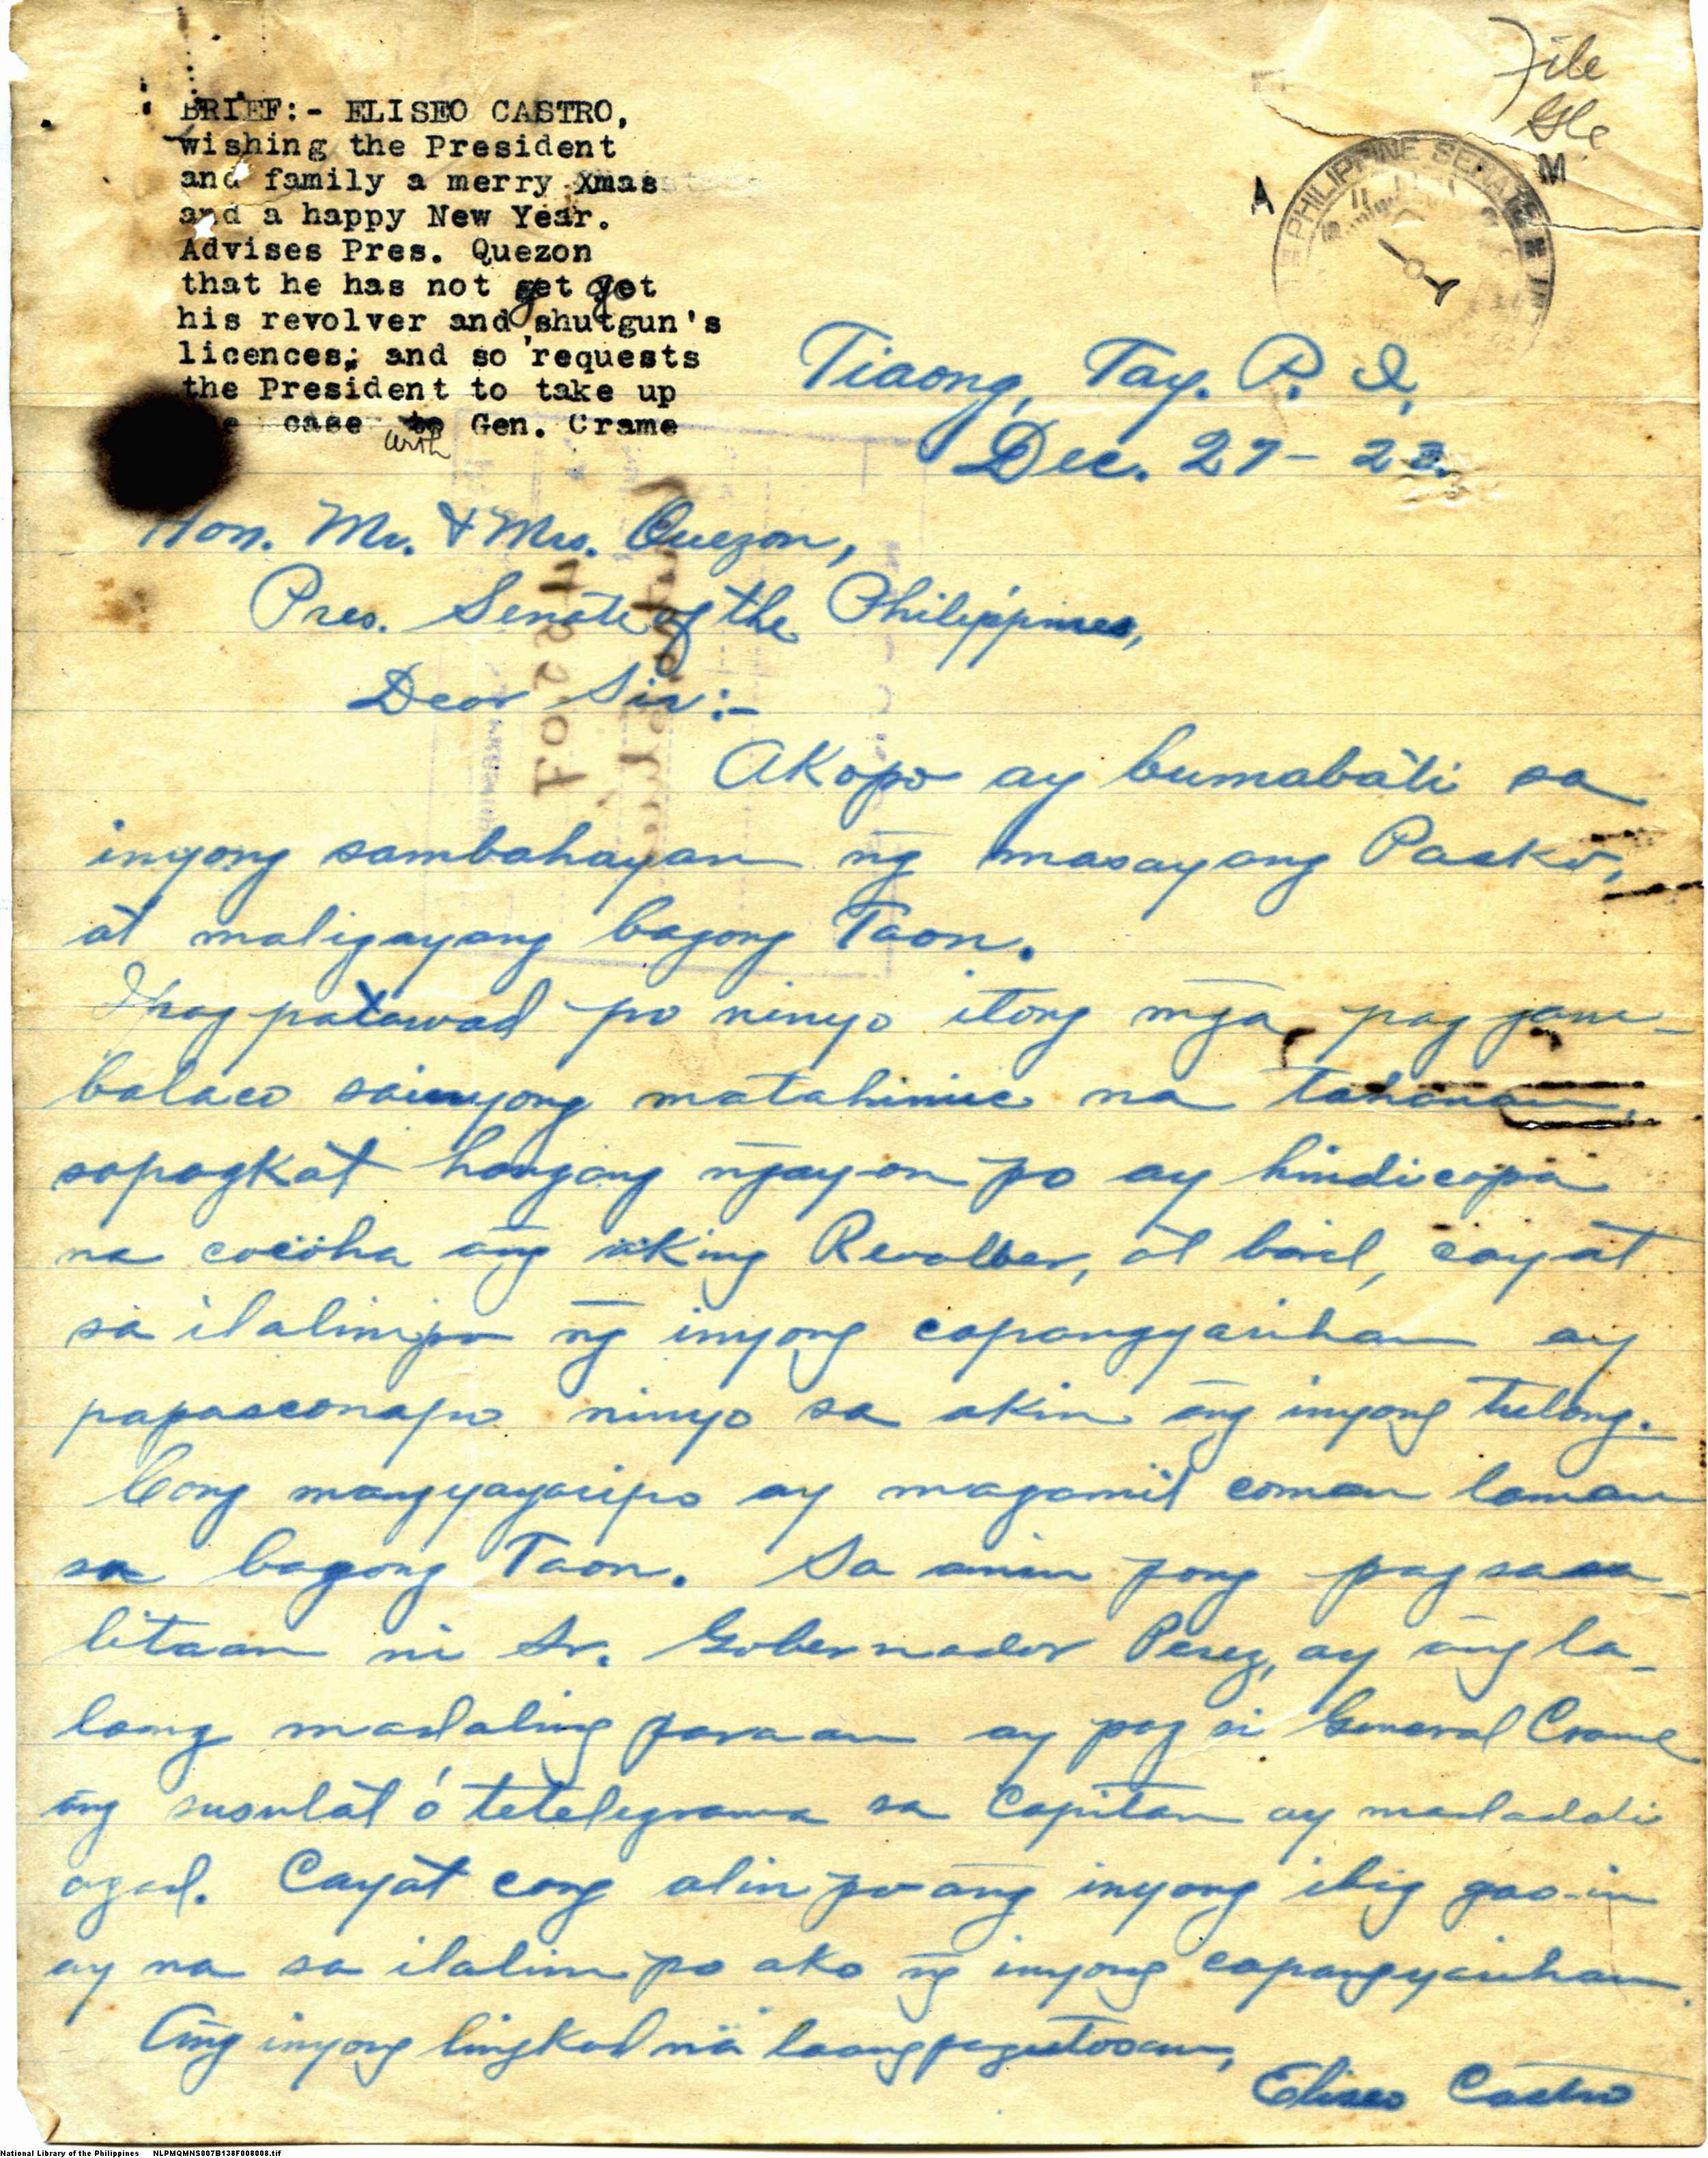 File
BRIEF:- ELISEO CASTRO,
wishing the President
and family a merry Xmas
and a happy New Year.
Advises Pres. Quezon
that he has not get yet
his revolver and shutgun's
licences; and so requests
the President to take up
case with Gen. Crame
A M
PHILIPPINE SENATE
Tiaong, Tay. P. I.
Dec. 27-23.
Hon. Mr. & Mrs. Quezon,
Pres. Senate of the Philippines,
Dear Sir:-
Akopo ay bumabàti sa
inyong sambahayan ng masayang Pasko,
at maligayang bagong Taon.
Ipag patawad po ninyo itong mga pag gam-
balaco sainyong matahimic na tahanan,
sapagkat hangang ngayon po ay hindicopa
na cocoha ang aking Revolber, at baril, cayat
sa ilalimpo ng inyong capangyarihan ay
papasconapo ninyo sa akin ang inyong tulong.
Cong mangyayaripo ay magamit coman laman
sa bagong Taon. Sa amin pong pag sasa-
litaan ni Sr. Gobernador Perez, ay ang la-
long madaling paraan ay pag si General Crame
ang susulat ó tetelegrama sa Capitan ay madadali
agad. Cayat cong alin po ang inyong ibig gao-in
ay na sa ilalim po ako ng inyong capangyarihan.
Ang inyong lingkod na laang pagutosan,
Eliseo Castro
National Library of the Philippines NLPMQMNS007B138F008008.tif